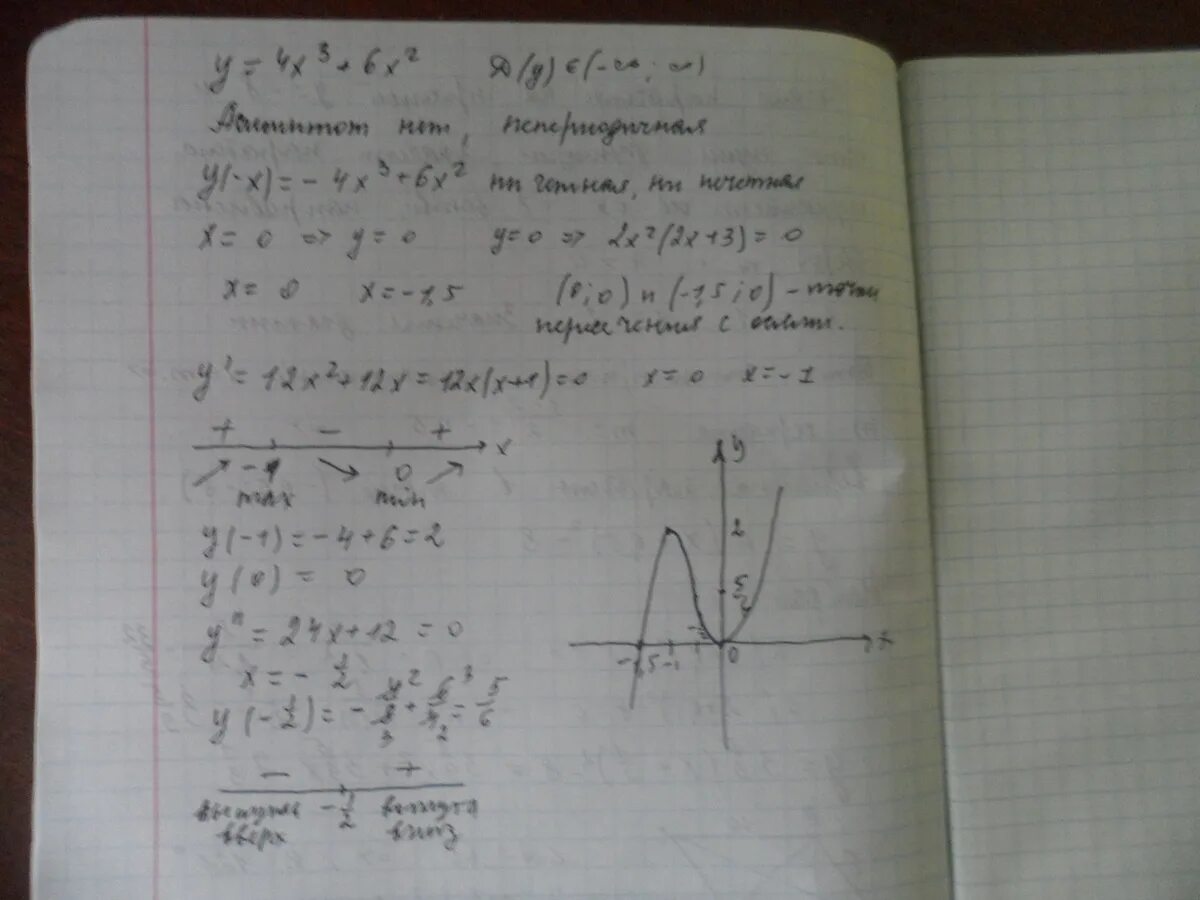 y = 4x³ + 6x²   D(y) ∈ (-∞; ∞)
Асимптот нет, непериодичная
y(-x) = - 4x³ + 6x² ни четная, ни нечетная
x = 0 => y = 0   y = 0 => 2x²(2x+3) = 0
x = 0   x = -1,5   (0; 0) и (-1,5; 0) - точки
пересечения с осями.
y' = 12x² + 12x = 12x(x+1) = 0   x = 0   x = -1
+ - + x
-1 0
max min
y(-1) = -4 + 6 = 2
y(0) = 0
y" = 24x + 12 = 0
x = - 1/2
y(-1/2) = - 4/8 + 6/4 = 5/6
- +
выпукла -1/2 выпукла
вверх вниз
y
2
x
-1,5 -1 0